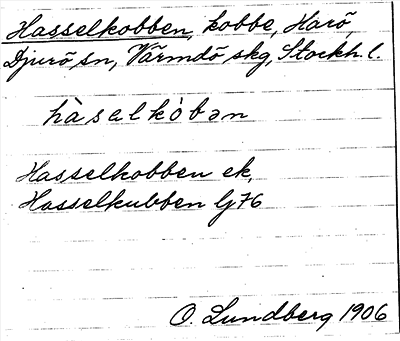 Hasselkobben, kobbe, Harö,
Djurö sn, Värmdö skg, Stockh. l.
hàsəlkòbən
Hasselkobben ek,
Hasselkubben Gj76
O. Lundberg 1906